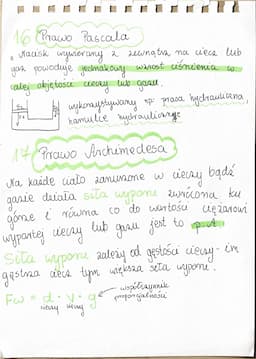 16 Prawo Pascala
• Nacisk wywierany z zewnątrz na ciecz lub
gaz powoduje jednakowy wzrost ciśnienia w
całej objętości cieczy lub gazu.
wykorzystywany np prasa hydrauliczna,
hamulce hydrauliczne
17 Prawo Archimedesa
Na każde ciało zanurzone w cieczy bądź
gazie działa siła wyporu zwrócona ku
górze i równa co do wartości ciężarowi
wypartej cieczy lub gazu jest to p. A
Siła wyporu zależy od gęstości cieczy - im
gęstsza ciecz tym większa siła wyporu.
Fw = d · v · g ← współczynnik
proporcjonalności
cieczy